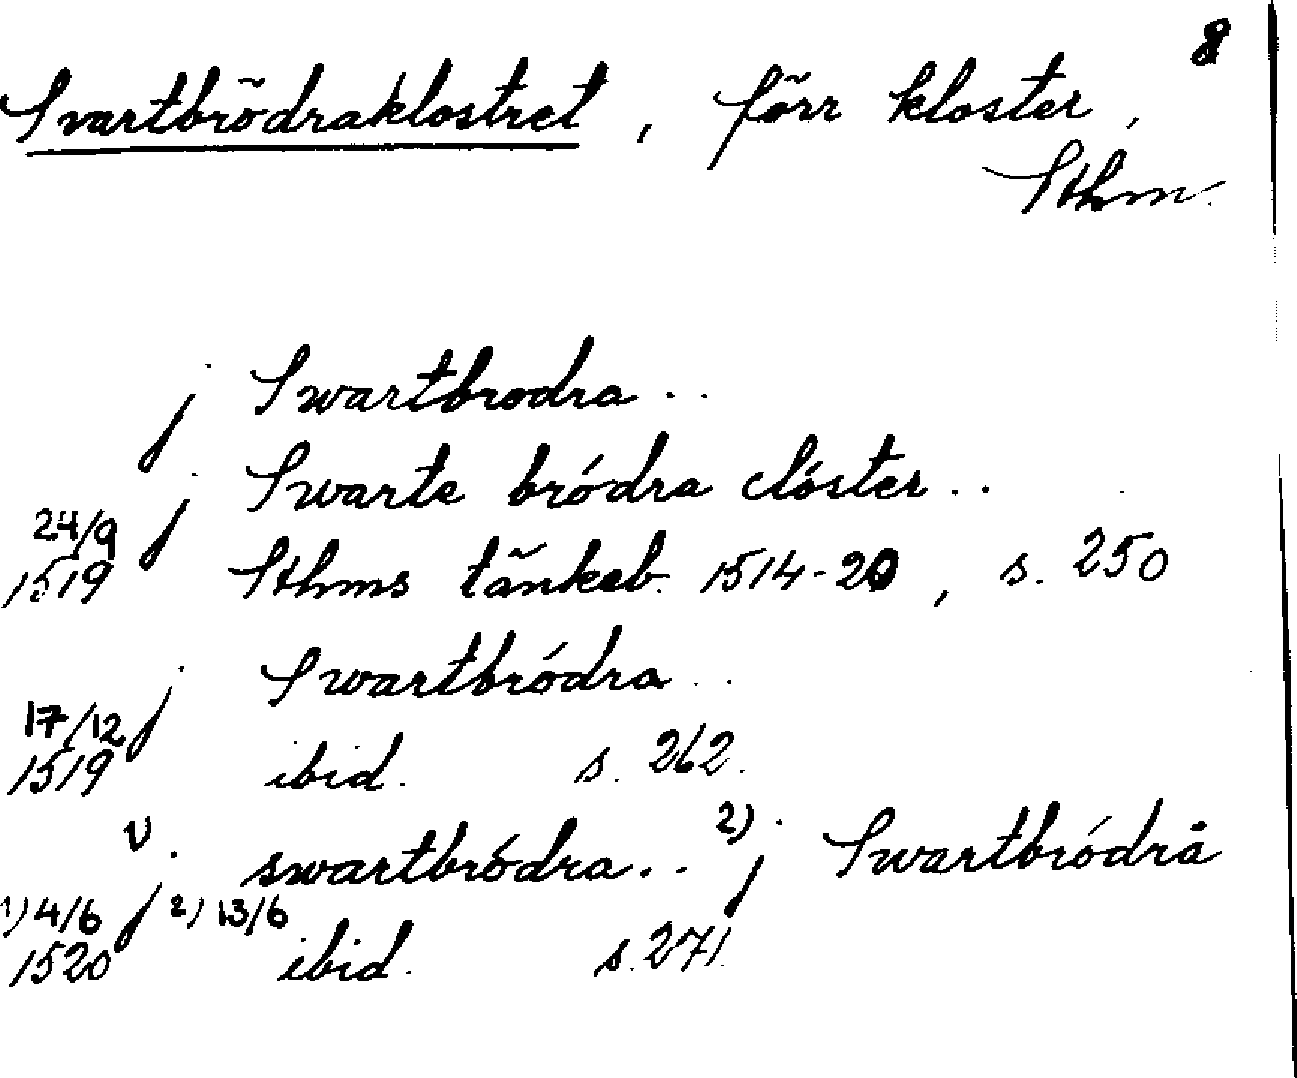 8
Svartbrödraklostret, förr kloster,
Sthm.
j Swartbrodra..
j Swarte bródra clóster..
24/9
1519 Sthms tänkeb. 1514-20, s. 250
j Swartbródra..
17/12
1519 ibid. s. 262.
1) j swartbródra.. 2) j Swartbródrå
1) 4/6 2) 13/6
1520 ibid. s. 271.